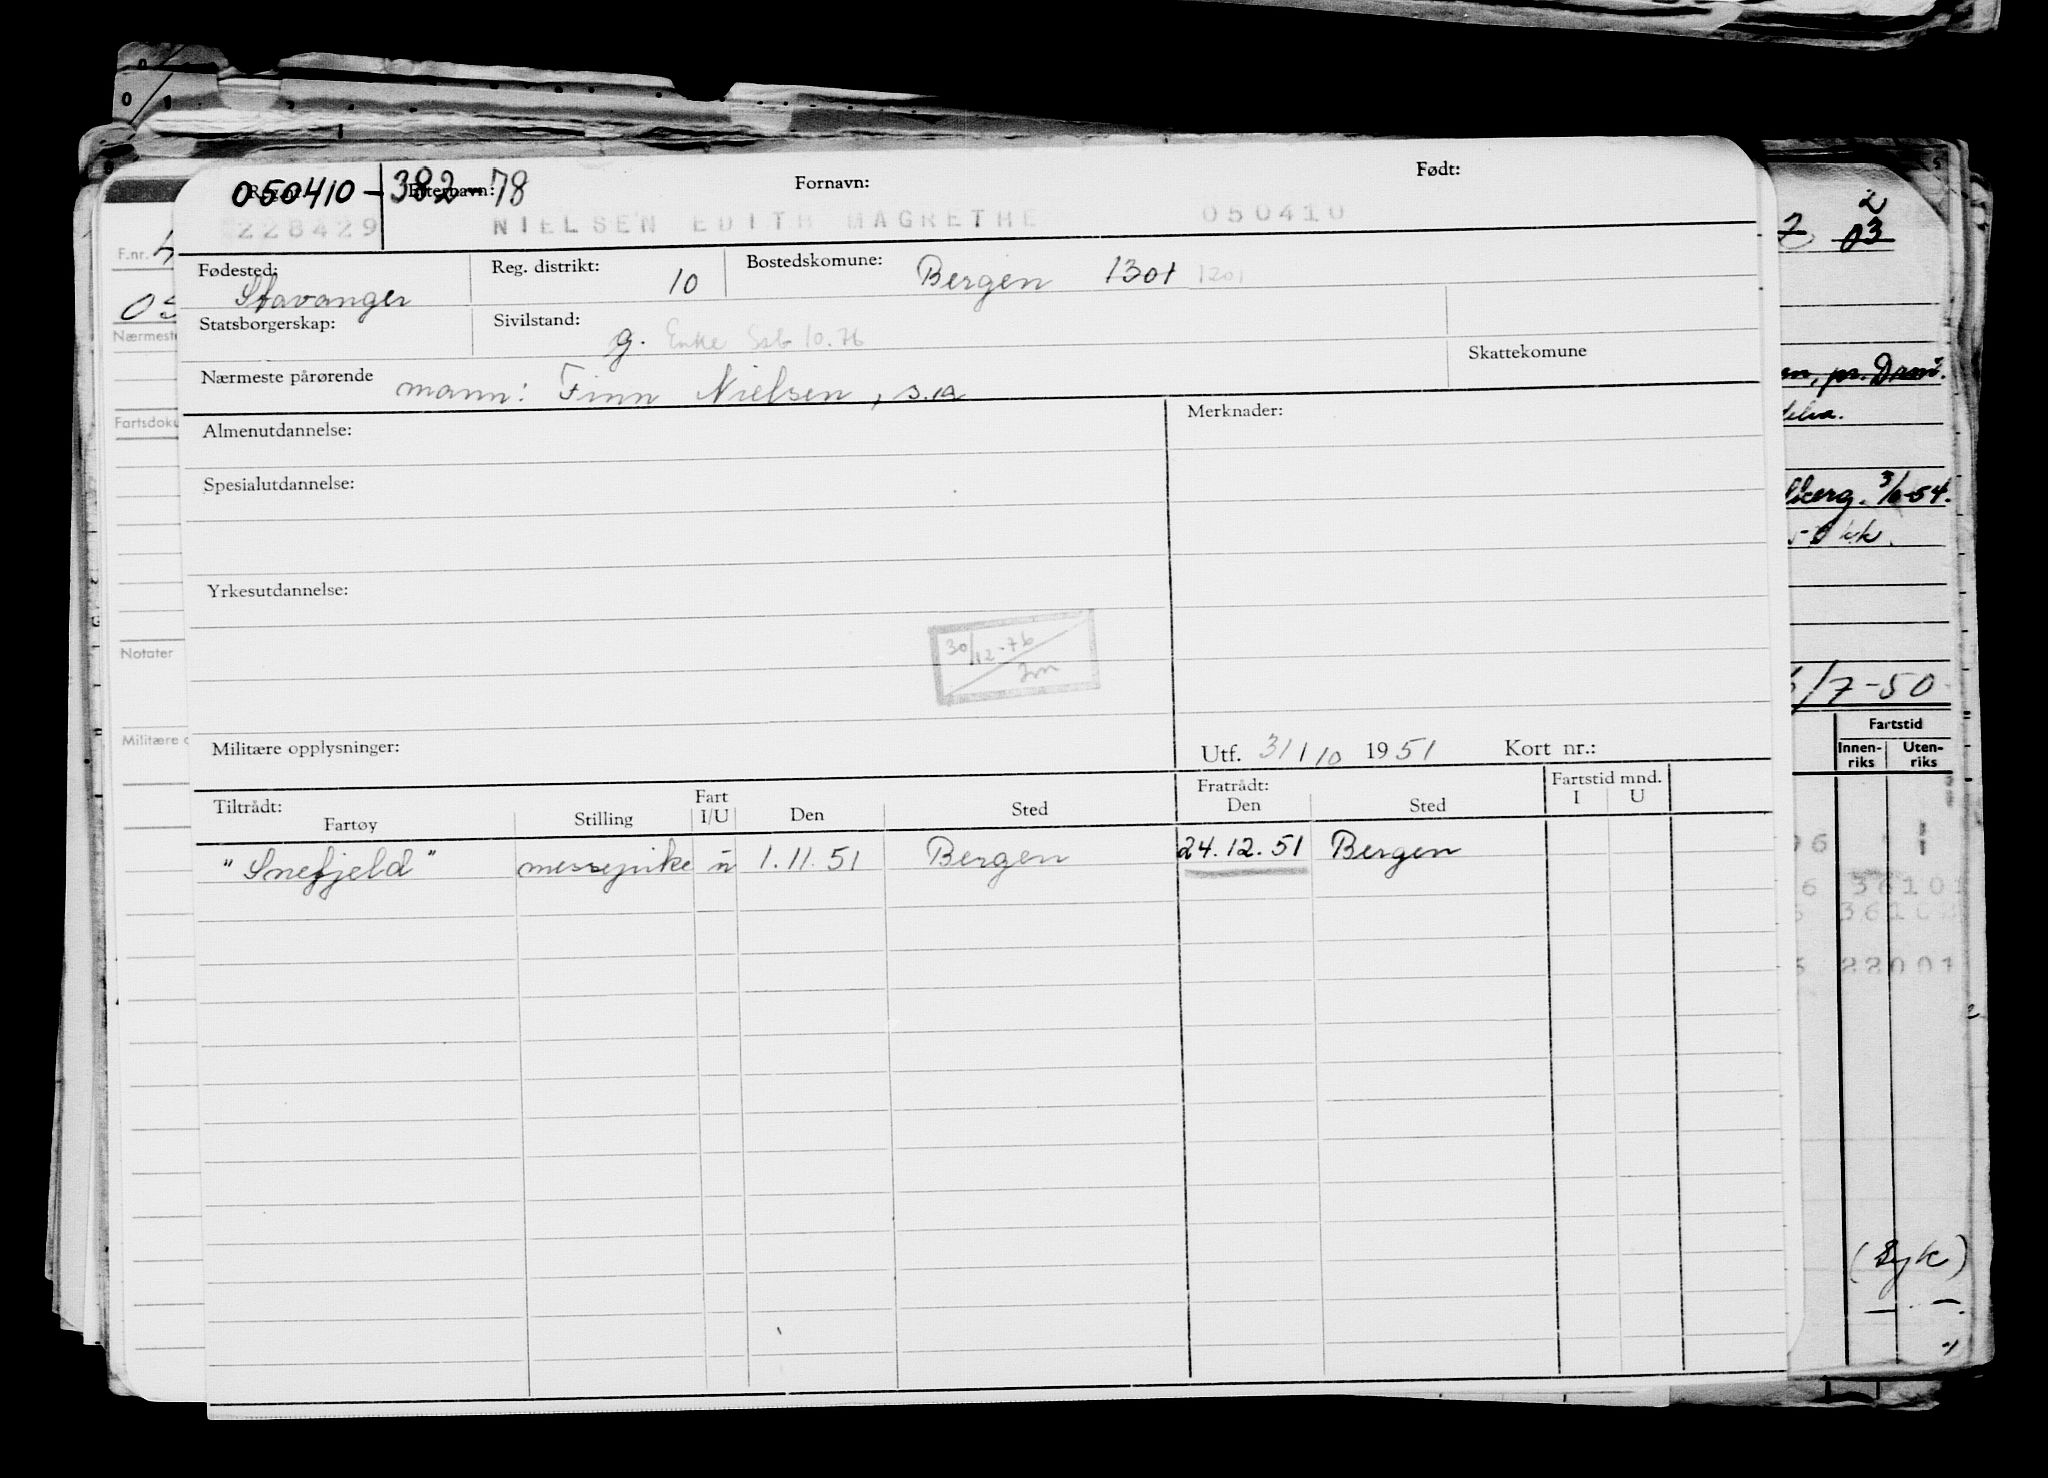 050410-38278
Efternavn: Fornavn: Født:
228429 NIELSEN EDITH MAGRETHE 050410
Fødested: Stavanger Reg. distrikt: 10 Bostedskomune: Bergen 1301 1201
Statsborgerskap: Sivilstand: g. Enke Ssb 10.76
Skattekomune
Nærmeste pårørende mann: Finn Nielsen, s.a
Almenutdannelse: Merknader:
Spesialutdannelse:
Yrkesutdannelse:
30/12-76
Militære opplysninger: Utf. 31/10 1951 Kort nr.:
Tiltrådt: Fart Fratrådt: Fartstid mnd.
Fartøy Stilling I/U Den Sted Den Sted I U
"Snefjeld" messepike u 1.11.51 Bergen 24.12.51 Bergen
F.nr.
Nærmest
Fartsdoku
Notater
Militære o
2
03
pr. Dram.
3/6-54.
/7-50
Fartstid
Innen-riks Uten-riks
36101
22001